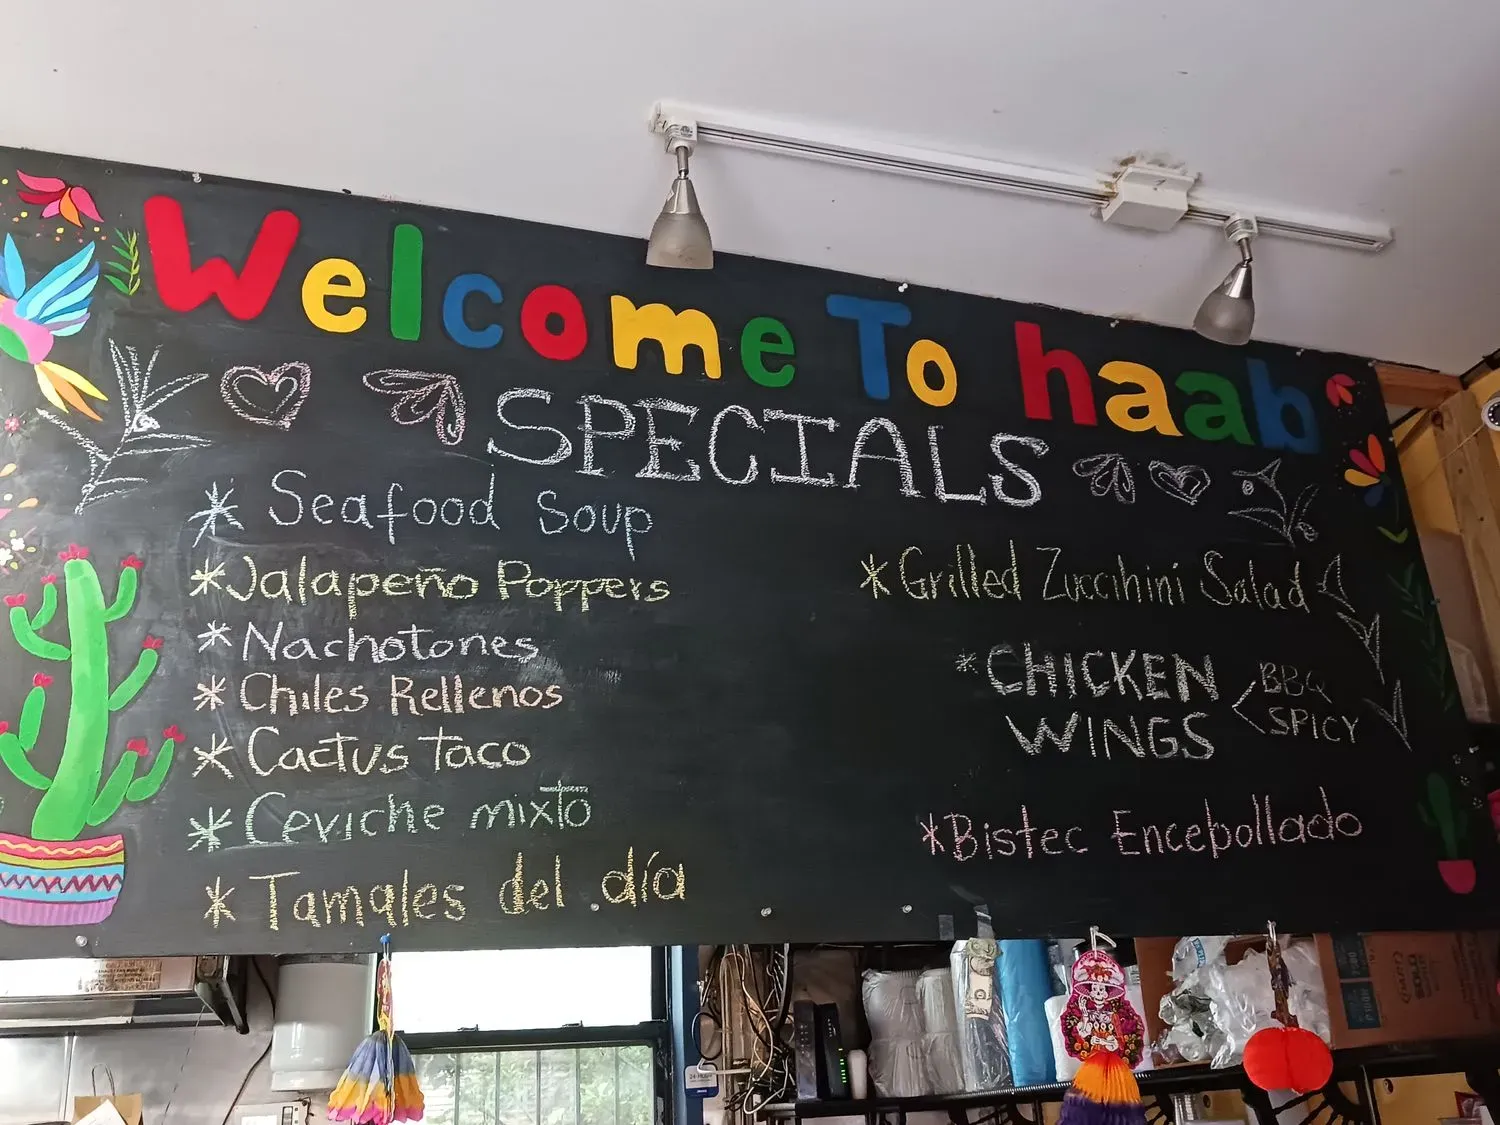 Welcome To haab
SPECIALS
* Seafood Soup
* Jalapeño Poppers
* Nachotones
* Chiles Rellenos
* Cactus taco
* Ceviche mixto
* Tamales del día
* Grilled Zuccihini Salad
* CHICKEN
WINGS
BBQ
SPICY
* Bistec Encebollado